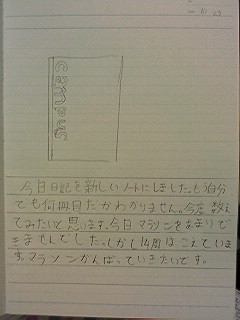 今日日記を新しいノートにしました。もう自分
でも何冊目だかわかりません。今度数え
てみたいて思います。今日マラソンをあまりで
きませんでした。しかし14周はこえていま
す。マラソンがんばっていきたいです。